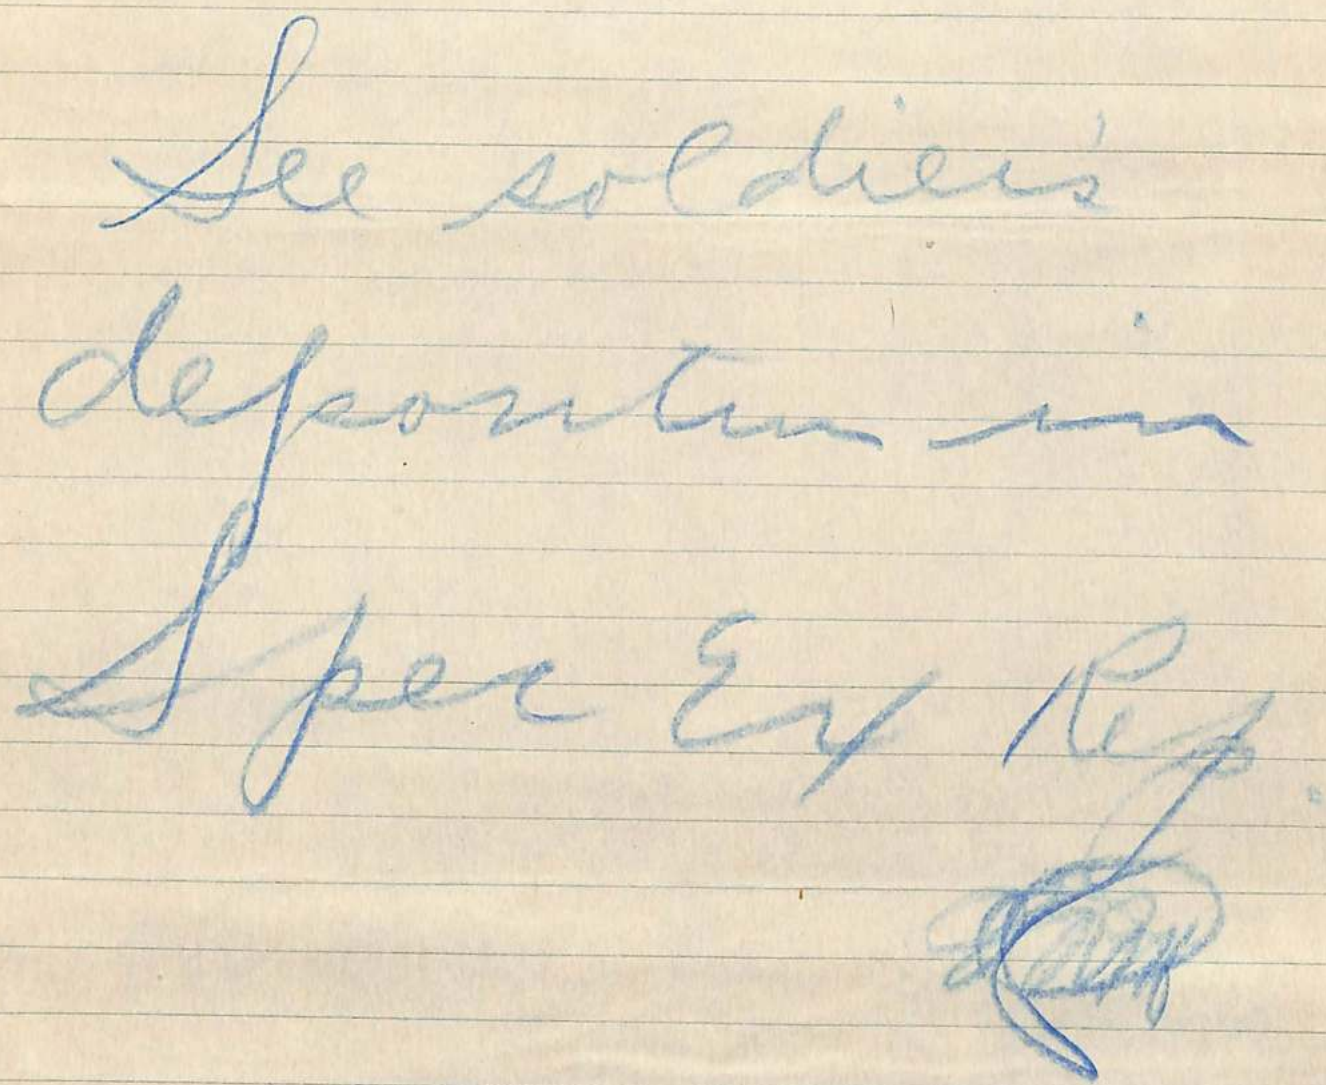 See soldier's
deposition in
Spec Ex Rep.